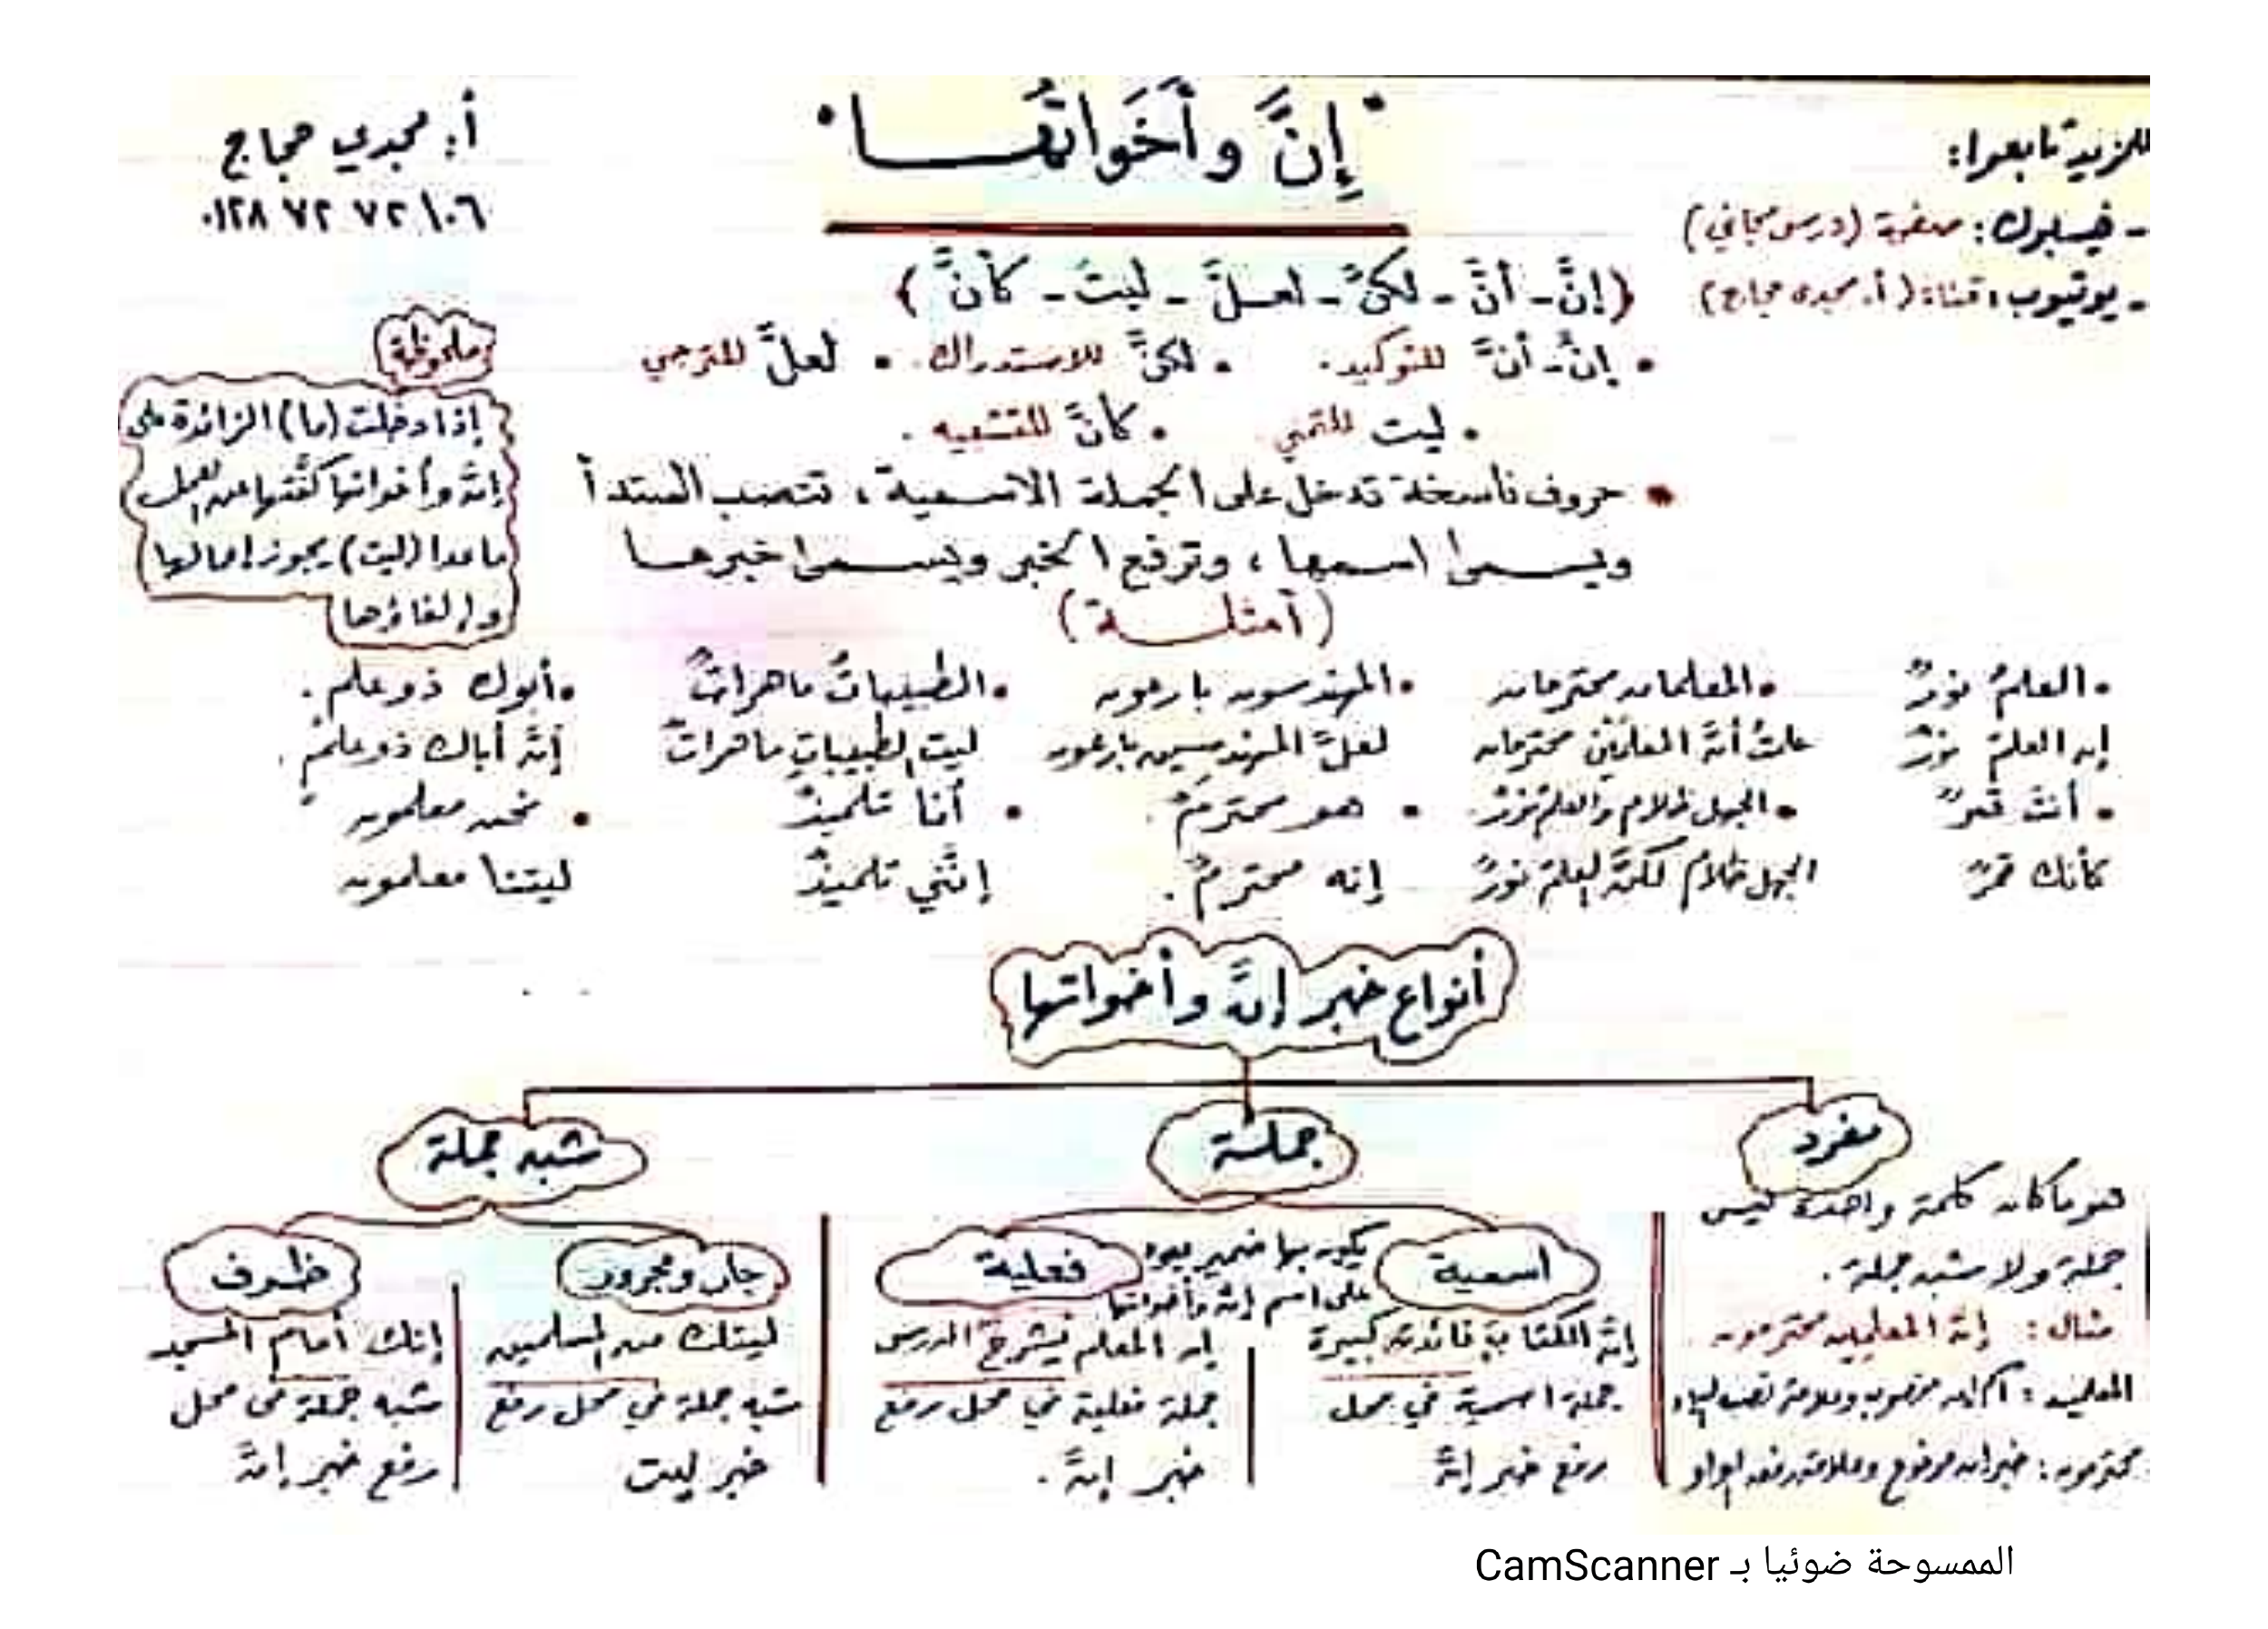 "إنَّ وأَخَواتُهـــا"
للمزيد تابعوا:
- فيسبوك: صفحة (درس مجاني)
- يوتيوب: قناة: (أ. مجدي حجاج)
أ: مجدي حجاج
٠١٢٨ ٧٢ ٧٢ ١٠٦
(إنَّ - أنَّ - لكنَّ - لعـلَّ - ليتَ - كأنَّ)
• إنَّ - أنَّ للتوكيد. • لكنَّ للاستدراك. • لعلَّ للترجي
• ليت للتمني • كأنَّ للتشبيه.
• حروف ناسخة تدخل على الجملة الاسمية، تنصب المبتدأ
ويسمى اسمها، وترفع الخبر ويسمى خبرها
ملحوظة
إذا دخلت (ما) الزائدة على
إنَّ وأخواتها كفَّتها عن العمل
ما عدا (ليت) يجوز إعمالها
وإلغاؤها
(أمثلـــة)
• العلمُ نورٌ • المعلمان محترمان • المهندسون بارعون • الطبيباتُ ماهراتٌ • أبوك ذو علم.
إن العلمَ نورٌ علمتُ أنَّ المعلمَيْن محترمان لعلَّ المهندسين بارعون ليت الطبيباتِ ماهراتٌ إنَّ أباك ذو علمٍ.
• أنتَ قمرٌ • الجهل ظلام والعلمُ نورٌ • هو محترمٌ. • أنا تلميذٌ • نحن معلمون
كأنك قمرٌ الجهل ظلامٌ لكنَّ العلمَ نورٌ إنه محترمٌ. إنَّني تلميذٌ ليتنا معلمون
أنواع خبر إنَّ وأخواتها
مفرد
هو ما كان كلمة واحدة ليس
جملة ولا شبه جملة.
مثال: إنَّ المعلمين محترمون
المعلمين: اسم إن منصوب وعلامة نصبه الياء
محترمون: خبر إن مرفوع وعلامة رفعه الواو
جملـة
يكون بها ضمير يعود
على اسم إنَّ وأخواتها
اسمية
إنَّ الكتابَ فائدته كبيرة
جملة اسمية في محل
رفع خبر إنَّ
فعلية
إن المعلم يشرحُ الدرس
جملة فعلية في محل رفع
خبر إنَّ.
شبه جملة
جار ومجرور
ليتك من المسلمين
شبه جملة في محل رفع
خبر ليت
ظرف
إنك أمام المسجد
شبه جملة في محل
رفع خبر إنَّ
الممسوحة ضوئيا بـ CamScanner